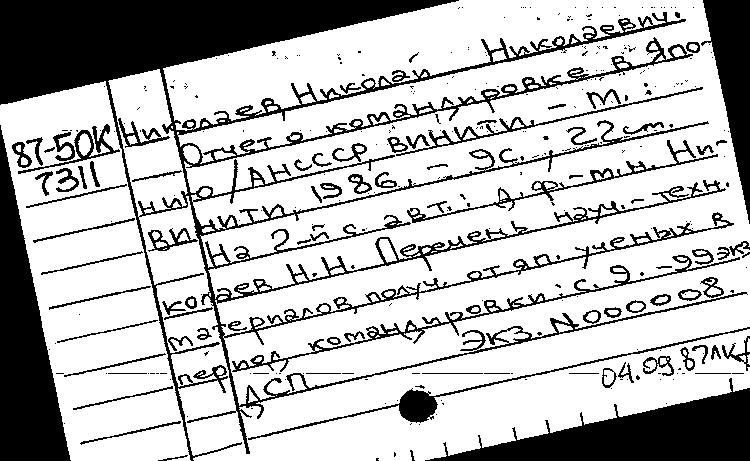 87-50К
7311
Николаев, Николай Николаевич.
Отчет о командировке в Япо-
нию / АНСССР, ВИНИТИ. – М. :
ВИНИТИ, 1986. – 9с. ; 22см.
На 2-й с. авт.: д. ф.-м.н. Ни-
колаев Н.Н. Перечень науч.-техн.
материалов, получ. от яп. ученых в
период командировки: с. 9. – 99экз.
Экз. N000008.
ДСП
04.09.87